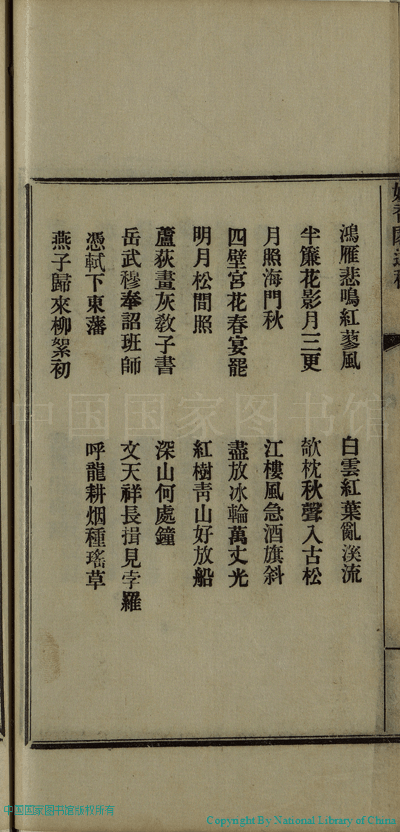 鴻雁悲鳴紅蓼風　白雲紅葉亂溪流
半簾花影月三更　欹枕秋聲入古松
月照海門秋　江樓風急酒旗斜
四壁宮花春宴罷　盡放冰輪萬丈光
明月松間照　紅樹靑山好放船
蘆荻畫灰敎子書　深山何處鐘
岳武穆奉詔班師　文天祥長揖見孛羅
憑軾下東藩　呼龍耕烟種瑤草
燕子歸來柳絮初
中国国家图书馆
中国国家图书馆版权所有
Copyright By National Library of China